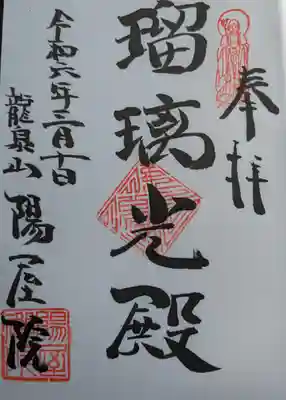 奉拝
瑠璃光殿
令和六年三月十日
龍泉山 陽屋院